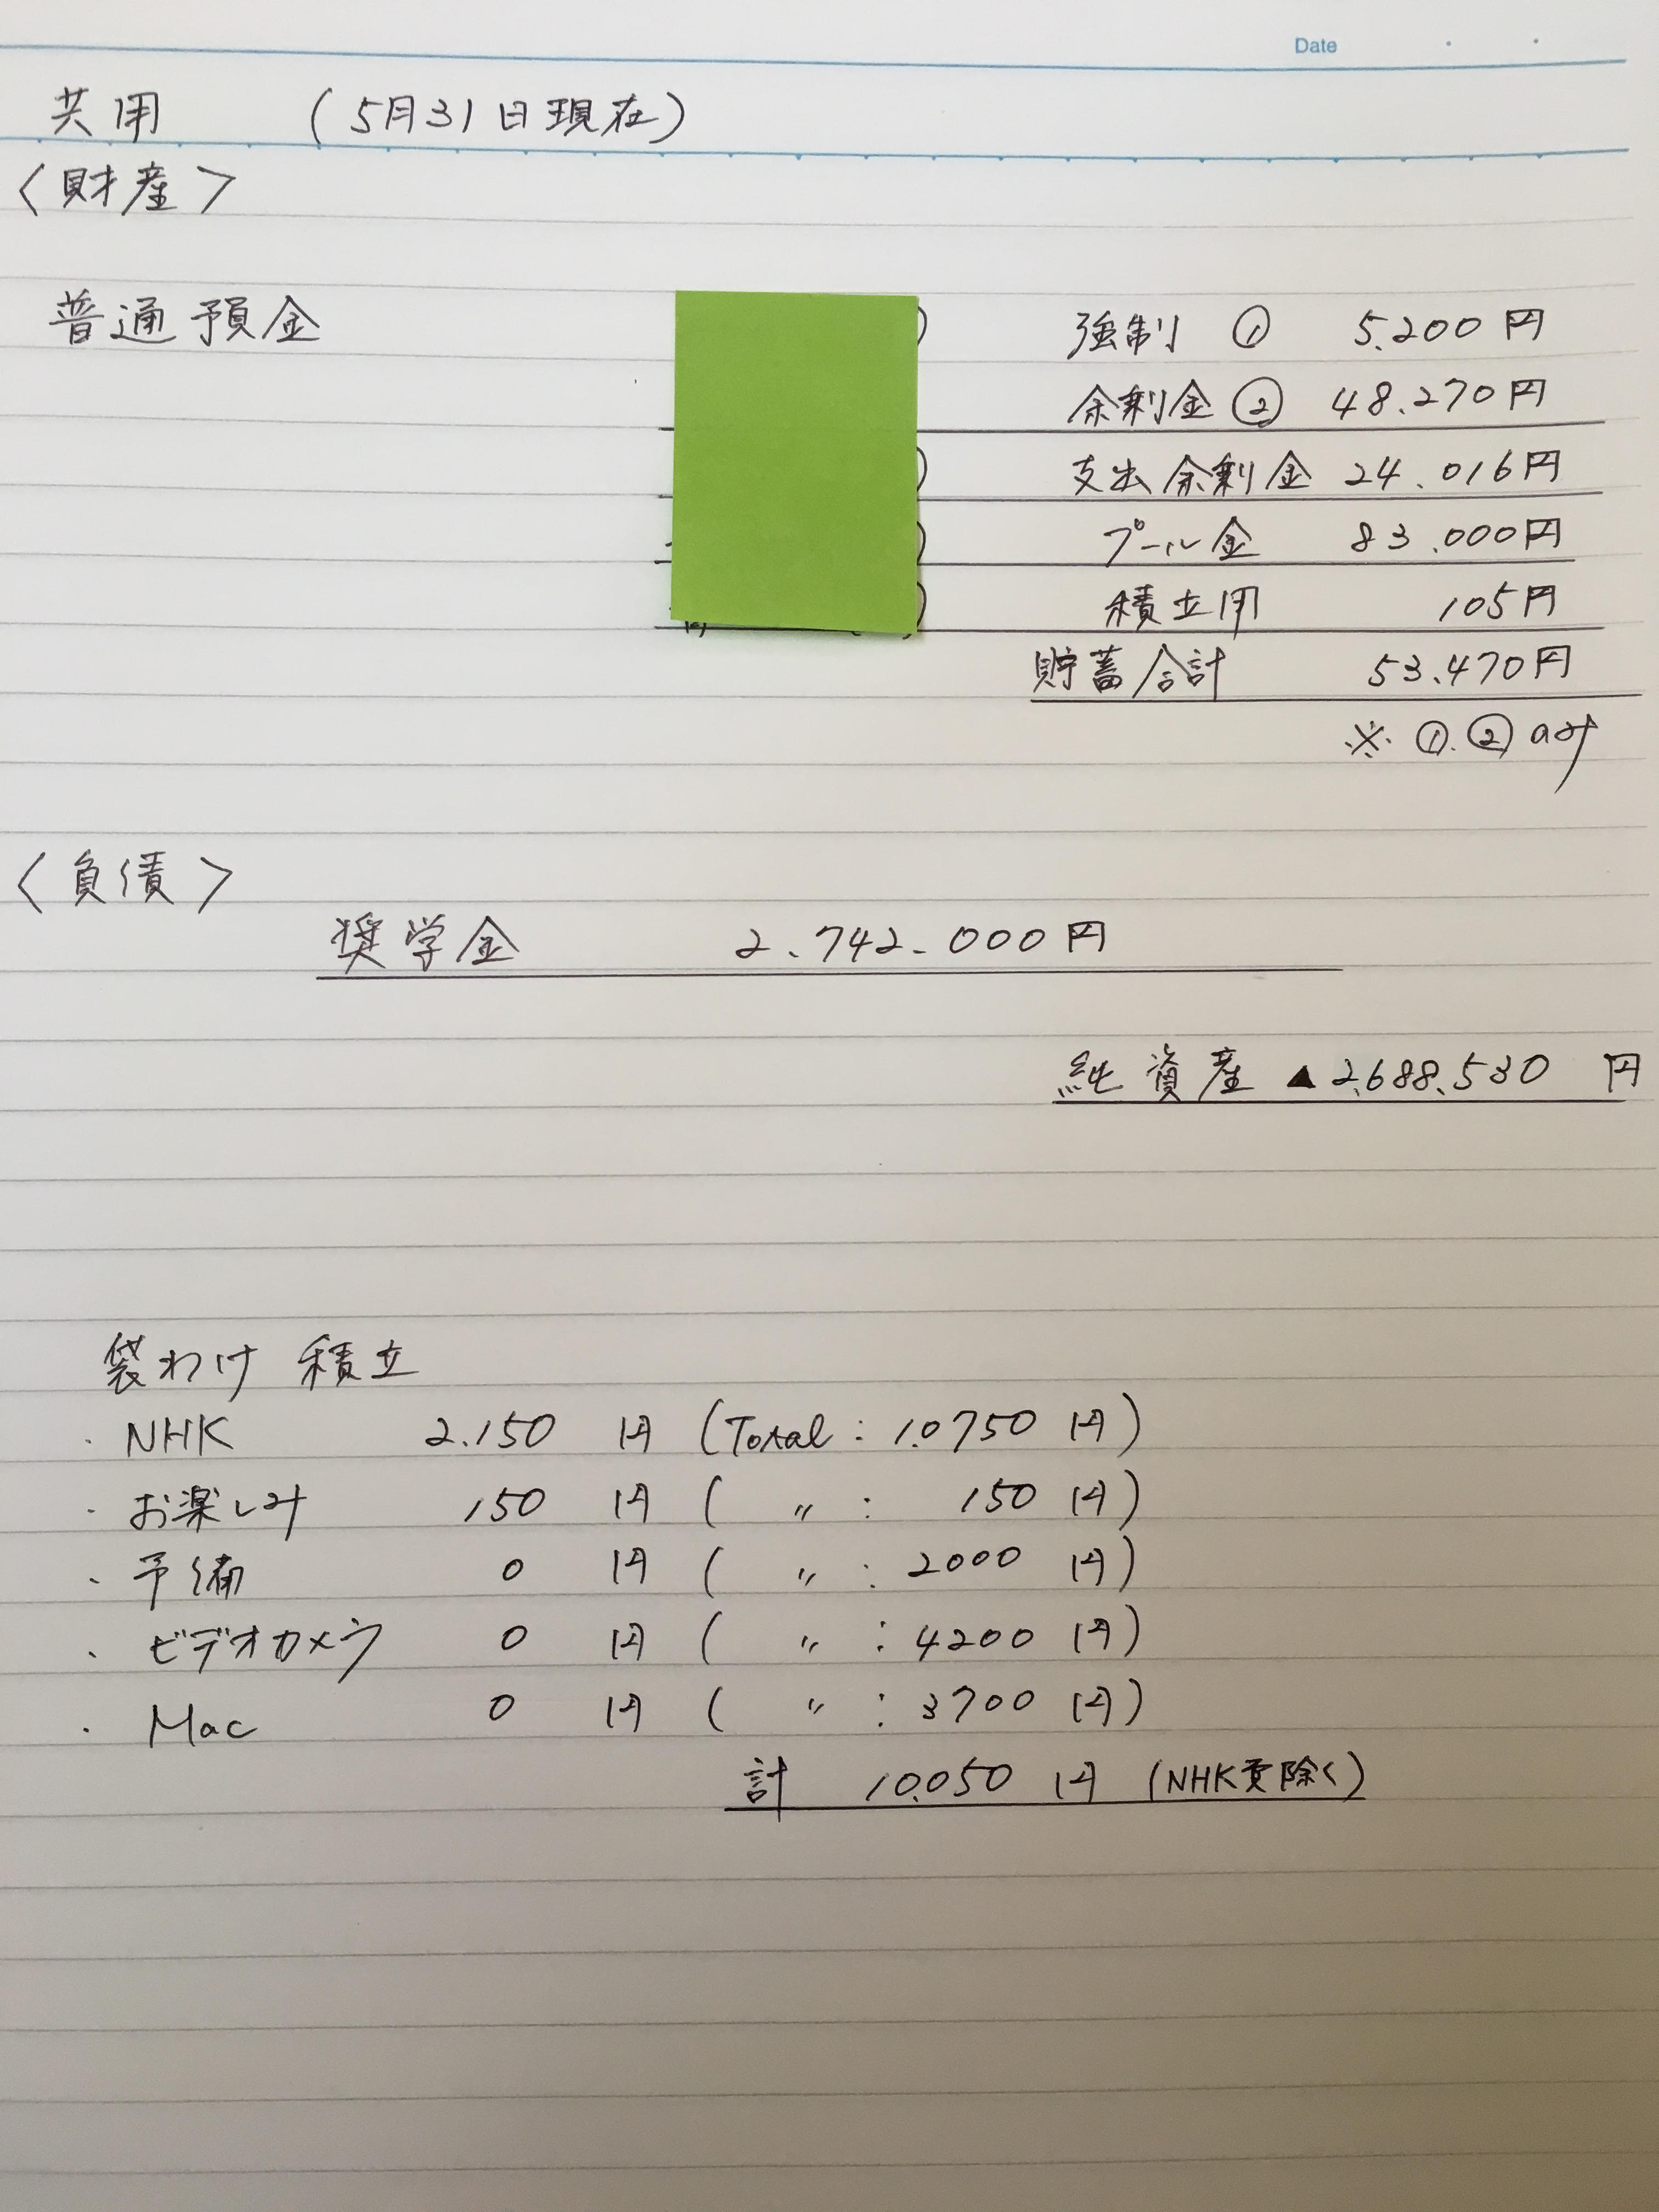 Date
共用 (5月31日現在)
〈財産〉
普通預金 強制 ① 5.200円
余剰金 ② 48.270円
支出余剰金 24.016円
プール金 83.000円
積立用 105円
貯蓄合計 53.470円
※ ①.② のみ
〈負債〉
奨学金 2.742.000円
純資産 ▲2.688.530 円
袋わけ 積立
・NHK 2.150 円 (Total : 10750 円)
・お楽しみ 150 円 ( 〃 : 150 円)
・予備 0 円 ( 〃 : 2000 円)
・ビデオカメラ 0 円 ( 〃 : 4200 円)
・Mac 0 円 ( 〃 : 3700 円)
計 10.050 円 (NHK費除く)